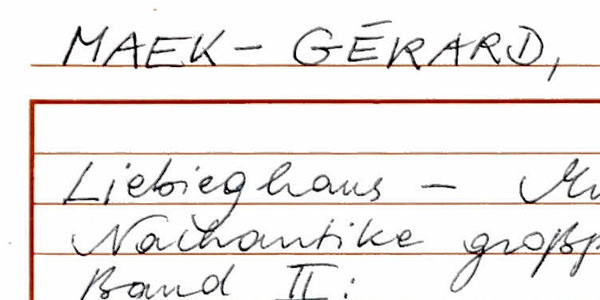 MAEK-GÉRARD,
Liebieghaus - Mu
Nachantike großp
Band II: